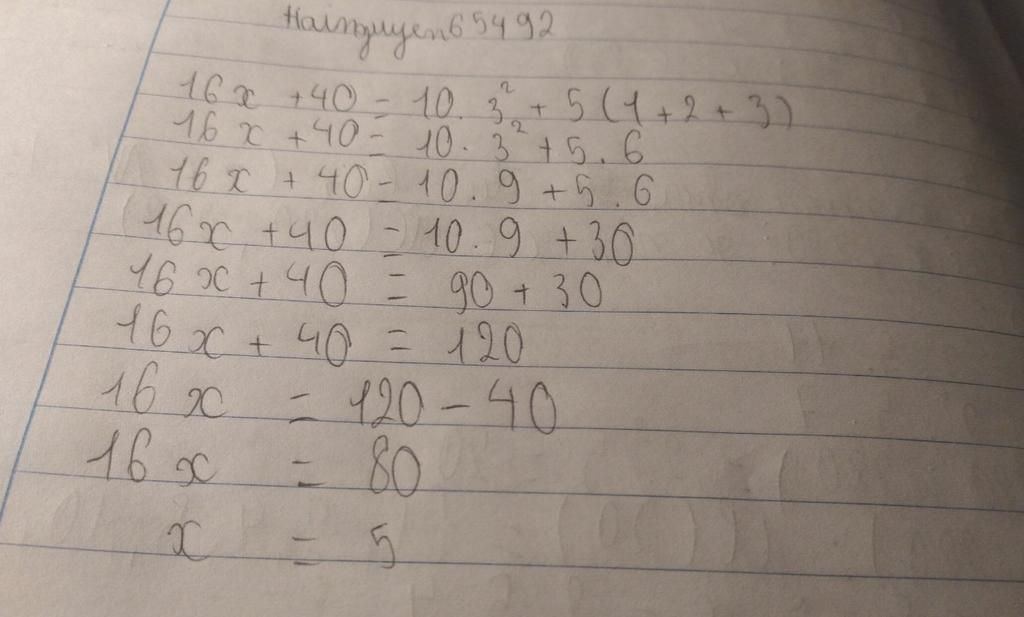 Hainguyen65492
16x + 40 = 10. 3² + 5 (1 + 2 + 3)
16x + 40 = 10. 3² + 5 . 6
16x + 40 = 10. 9 + 5 . 6
16x + 40 = 10. 9 + 30
16x + 40 = 90 + 30
16x + 40 = 120
16x = 120 - 40
16x = 80
x = 5